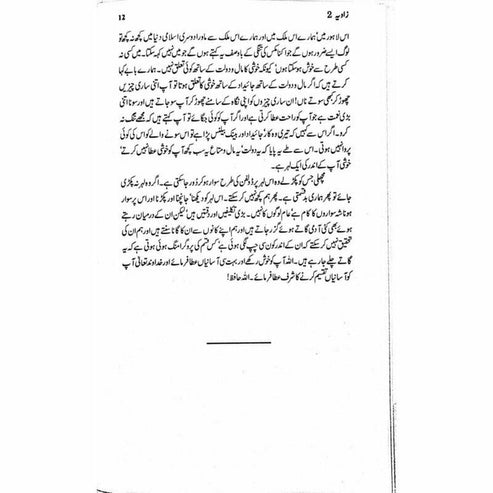 زاویہ 2
12
اس لاہور میں ہمارے اس ملک میں اور ہمارے اس ملک سے ماوراء دوسری اسلامی دنیا میں کچھ نہ کچھ تو
لوگ ایسے ضرور ہوں گے جو اکنامکس کی تنگی کے باوصف یہ کہتے ہوں گے جو میں نہیں کہہ سکتا۔ میں
کسی طرح سے خوش ہو سکتا ہوں' کیونکہ خوشی کا مال و دولت کے ساتھ کوئی تعلق نہیں۔ ہمارے بابے کہا
کرتے ہیں کہ اگر مال و دولت کے ساتھ جائیداد کے ساتھ خوشی کا تعلق ہوتا تو آپ اتنی ساری چیزیں
چھوڑ کر کبھی سوتے ناں! ان ساری چیزوں کو اپنی نگاہ کے سامنے چھوڑ کر آپ سو جاتے ہیں اور سونا اتنی
بڑی نعمت ہے جو آپ کو راحت عطا کرتی ہے اور اگر آپ کو کوئی جگائے تو آپ کہتے ہیں کہ مجھے تنگ نہ
کرو۔ اگر اس سے کہیں کہ تیری وہ کار' جائیداد اور بینک بیلنس پڑا ہے تو اس سونے والے کو اس کی کوئی
پروا نہیں ہوتی۔ اس سے طے یہ پایا کہ یہ دولت' یہ مال و متاع یہ سب کچھ آپ کو خوشی عطا نہیں کرتے'
خوشی آپ کے اندر کی ایک لہر ہے۔
مچھلی جس کو پکڑ لے وہ اس لہر پر ڈولفن کی طرح سوار ہو کر دور جا سکتی ہے۔ اگر وہ لہر نہ پکڑی
جائے تو پھر ہماری بدقسمتی ہے۔ پھر ہم کچھ نہیں کر سکتے۔ اس لہر کو دیکھنا' جانچنا اور اس پر سوار
ہونا شہ سواروں کا کام ہے' عام لوگوں کا نہیں۔ بڑی تکلیفیں اور دقتیں ہیں' لیکن ان کے درمیان رہتے
ہوئے بھی کئی آدمی گاتے ہوئے گزر جاتے ہیں اور ہم اپنے کانوں سے ان کا گانا سنتے ہیں اور ہم ان کی
تحقیق نہیں کر سکتے کہ ان کے اندر کون سی چپ لگی ہوئی ہے' کس قسم کی پروگرامنگ ہوئی ہوتی ہے کہ یہ
گاتے چلے جا رہے ہیں۔ اللہ آپ کو خوش رکھے اور بہت سی آسانیاں عطا فرمائے اور خداوند تعالیٰ آپ
کو آسانیاں تقسیم کرنے کا شرف عطا فرمائے۔ اللہ حافظ!